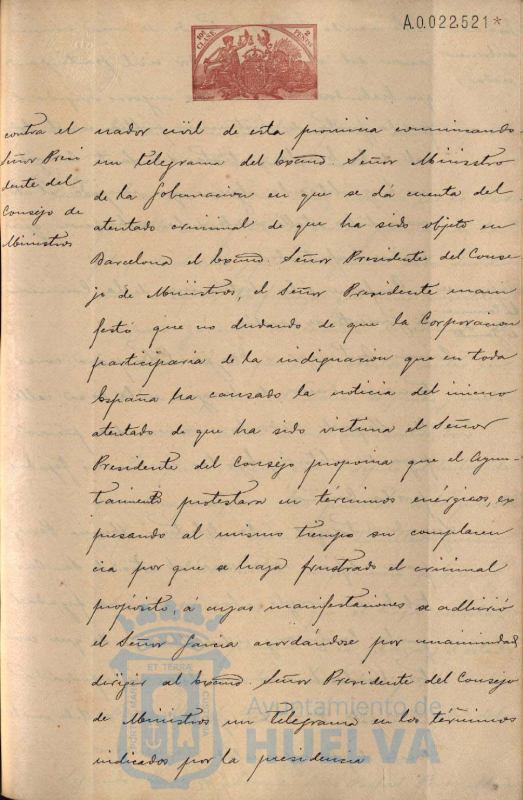 A.0.022.521*
10ª CLASE
2 PESETAS
contra el
Señor Presi
dente del
Consejo de
Ministros
nador civil de esta provincia comunicando
un telegrama del Excmo. Señor Ministro
de la Gobernacion en que se dá cuenta del
atentado criminal de que ha sido objeto en
Barcelona el Excmo. Señor Presidente del Conse-
jo de Ministros, el Señor Presidente mani
festó que no dudando de que la Corporacion
participaria de la indignacion que en toda
España ha causado la noticia del inicuo
atentado de que ha sido victima el Señor
Presidente del Consejo proponia que el Ayun-
tamiento protestara en términos enérgicos, ex
presando al mismo tiempo su complacen
cia por que se haya frustrado el criminal
propósito, á cuyas manifestaciones se adhirió
el Señor Garcia acordándose por unanimidad,
dirigir al Excmo. Señor Presidente del Consejo
de Ministros un telegrama en los términos
indicados por la presidencia
ET TERRÆ
Ayuntamiento de
HUELVA